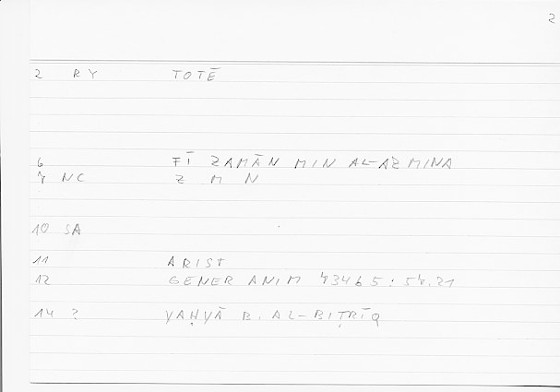 2
2 RY TOTĒ
6 FĪ ZAMĀN MIN AL-AZMINA
7 NC Z M N
10 SA
11 ARIST
12 GENER ANIM 734b5: 57.21
14 ? YAḤYĀ B. AL-BIṬRĪQ